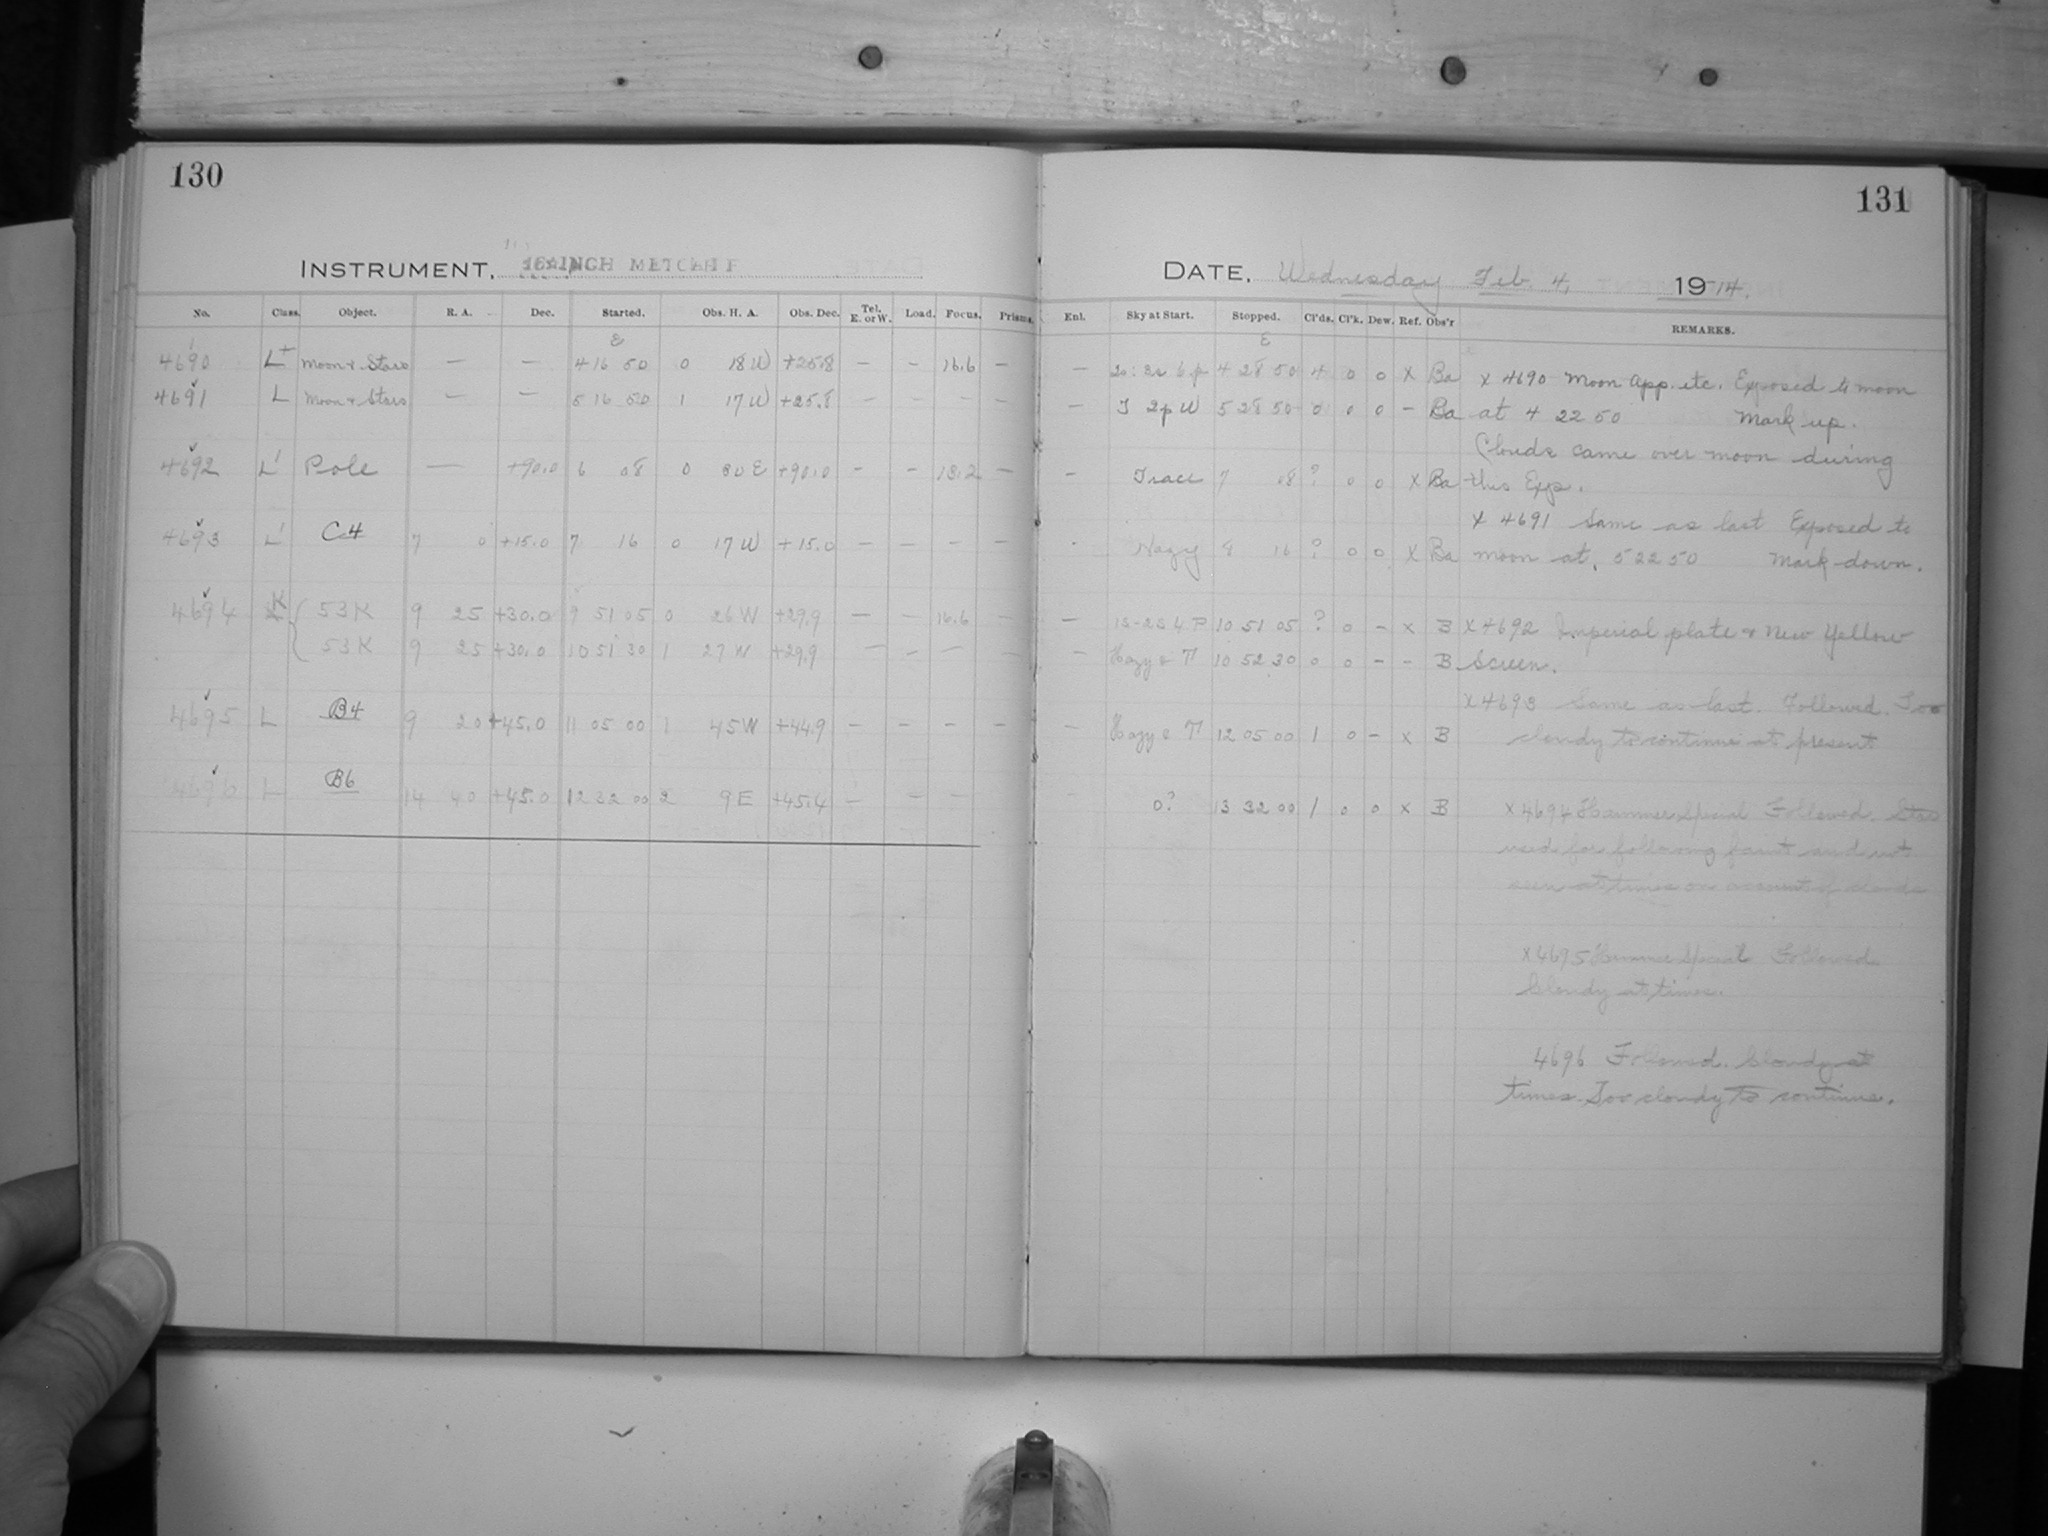 130
INSTRUMENT, 16 INCH METCALF
No. Class. Object. R. A. Dec. Started. Obs. H. A. Obs. Dec. Tel. E. or W. Load. Focus. Prisms.
E
4690 L+ Moon & Stars — — 4 16 50 0 18 W +25.8 — — 16.6 —
4691 L Moon & Stars — — 5 16 50 1 17 W +25.8 — — — —
4692 L' Pole — +90.0 6 08 0 30 E +90.0 — — 13.2 —
4693 L' C4 7 0 +15.0 7 16 0 17 W +15.0 — — — —
4694 K 53K 9 25 +30.0 9 51 05 0 26 W +29.9 — — 16.6 —
53K 9 25 +30.0 10 51 30 1 27 W +29.9 — — — —
4695 L B4 9 20 +45.0 11 05 00 1 45 W +44.9 — — — —
4696 L B6 14 40 +45.0 12 32 00 2 9 E +45.4 — — —
131
DATE, Wednesday Feb. 4, 1914.
Enl. Sky at Start. Stopped. Cl'ds. Cl'k. Dew. Ref. Obs'r REMARKS.
E
— 4 28 50 4 0 0 X Ba X 4690 Moon App. etc. Exposed to moon
— 2p W 5 28 50 0 0 0 — Ba at 4 22 50 Mark up.
Clouds came over moon during
— Trace 7 08 ? 0 0 X Ba this Exp.
X 4691 Same as last Exposed to
Hazy 8 16 ? 0 0 X Ba moon at, 5 22 50 Mark down.
— 10 51 05 ? 0 — X B X 4692 Imperial plate & New Yellow
— Hazy & 10 52 30 0 0 — — B Screen.
X 4693 Same as last. Followed. Too
— Hazy & 12 05 00 1 0 — X B cloudy to continue at present
0? 13 32 00 1 0 0 X B X 4694 Hammer Special Followed. Star
used for following faint and not
seen at times on account of clouds
X 4695 Hammer Special Followed
Cloudy at times.
4696 Followed. Cloudy at
times. Too cloudy to continue.